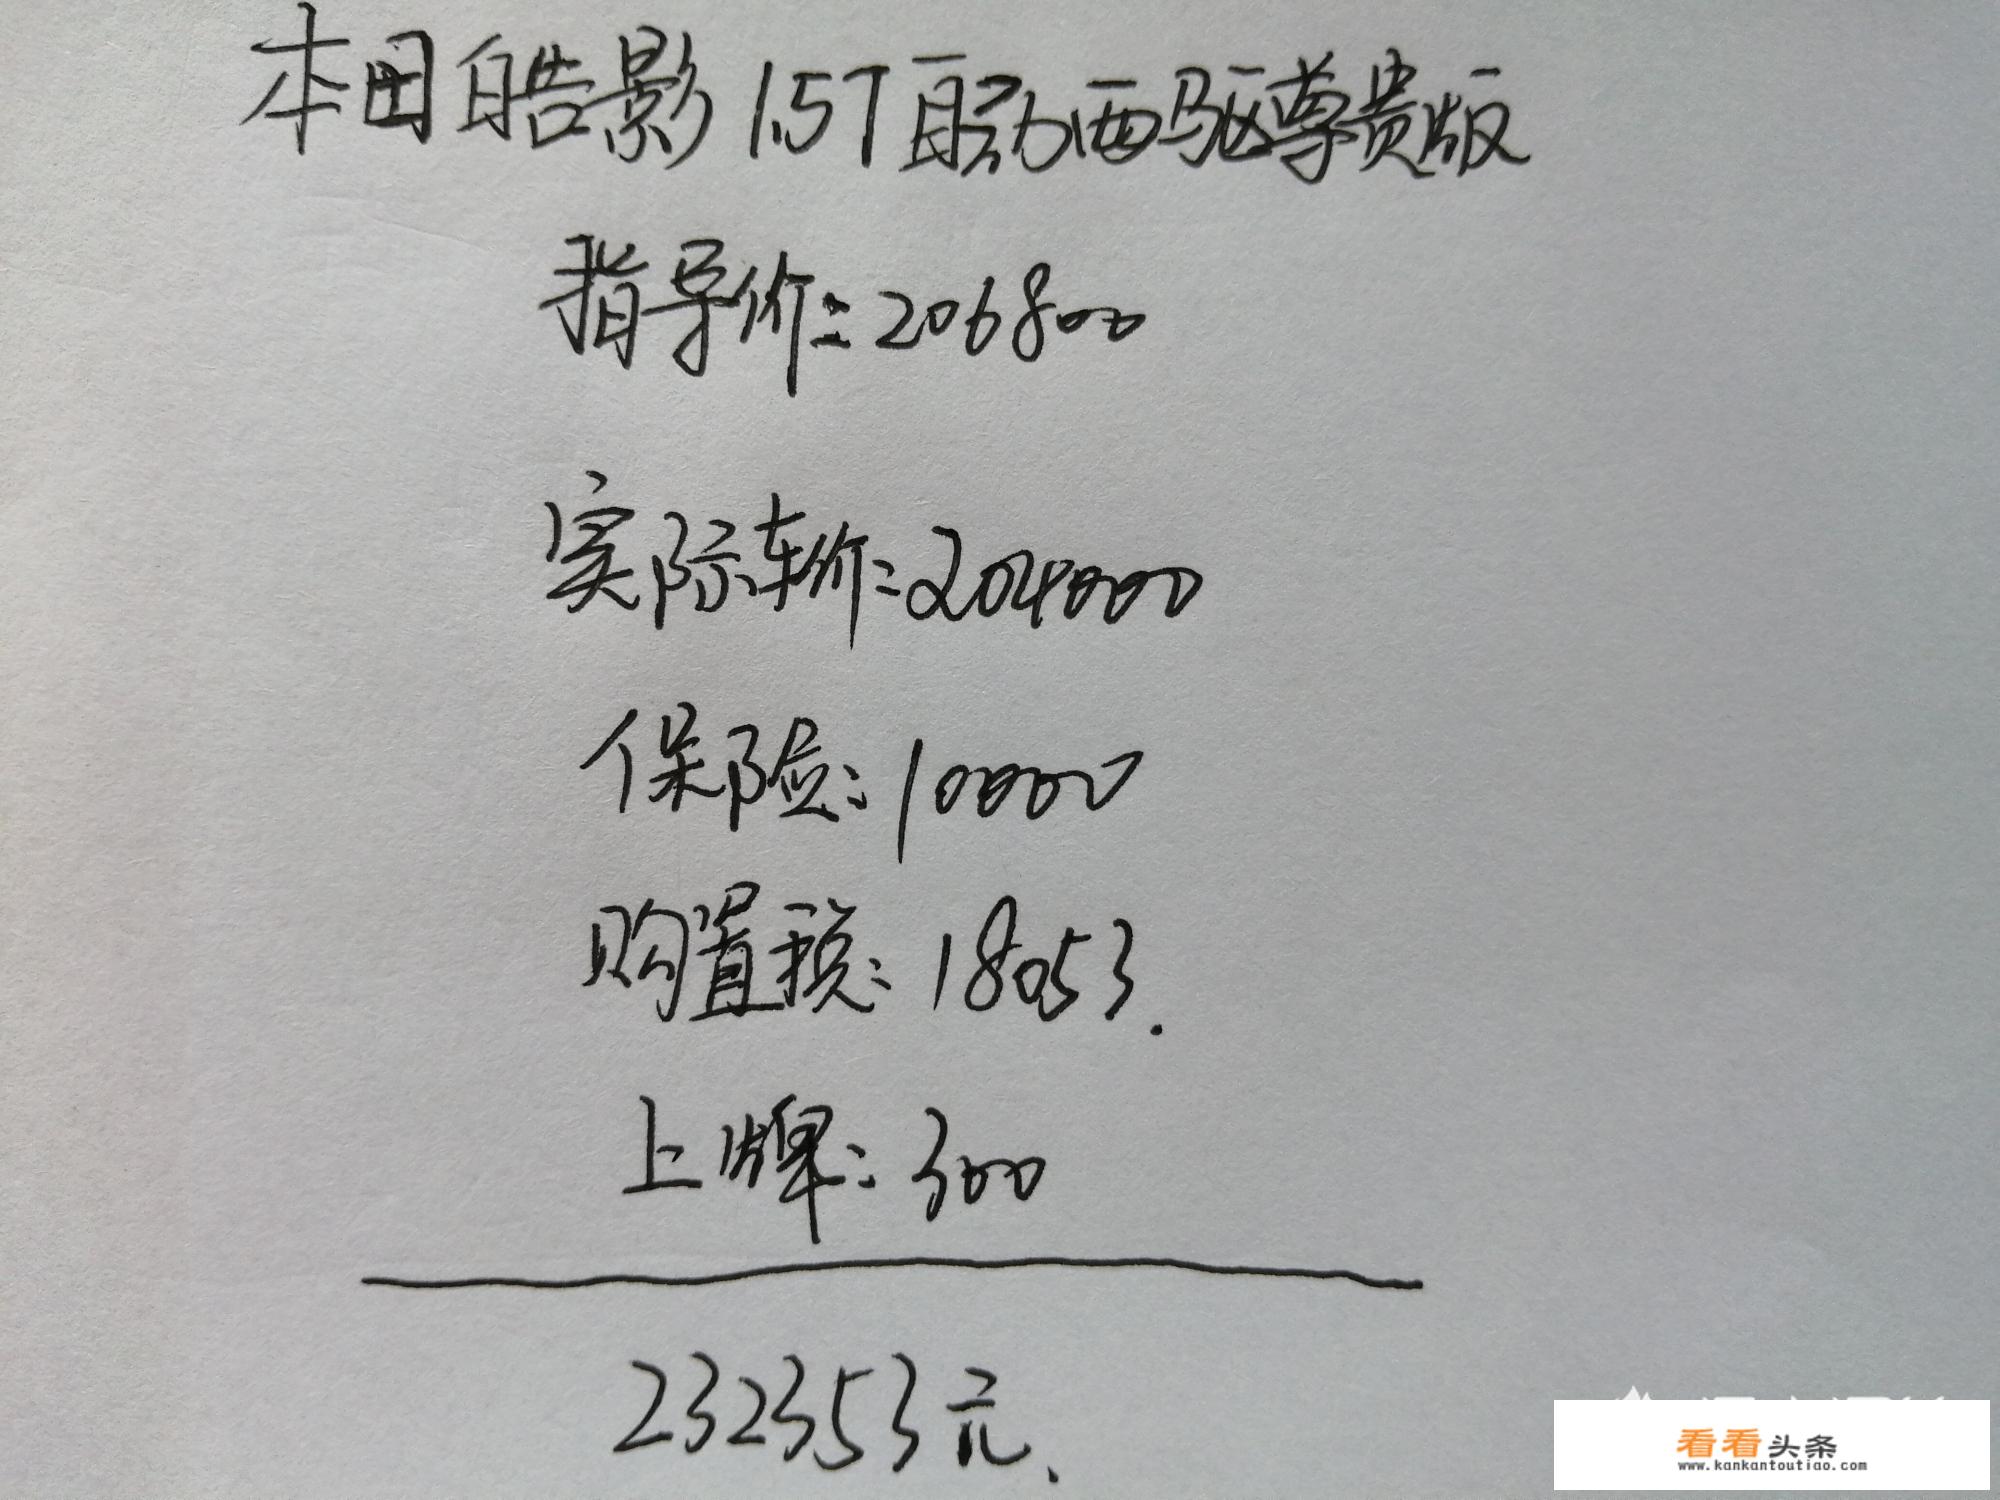 本田皓影 1.5T自动两驱尊贵版
指导价:206800
实际车价:204000
保险:10000
购置税:18053.
上牌:300
232353元.
看看头条
www.kankantoutiao.com